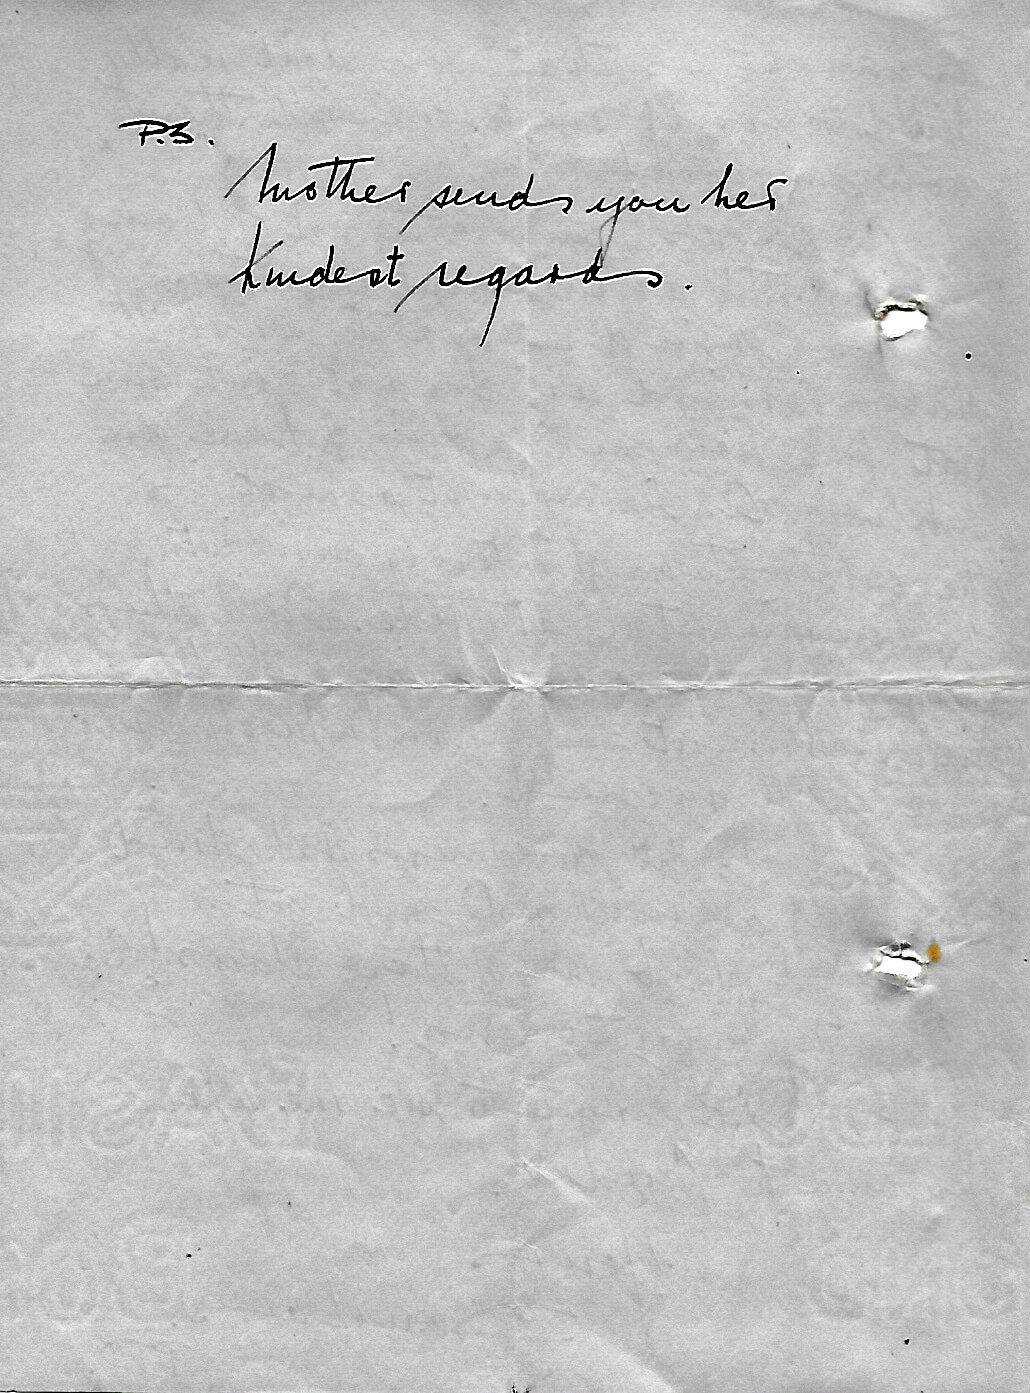 P.S.
Mother sends you her
kindest regards.